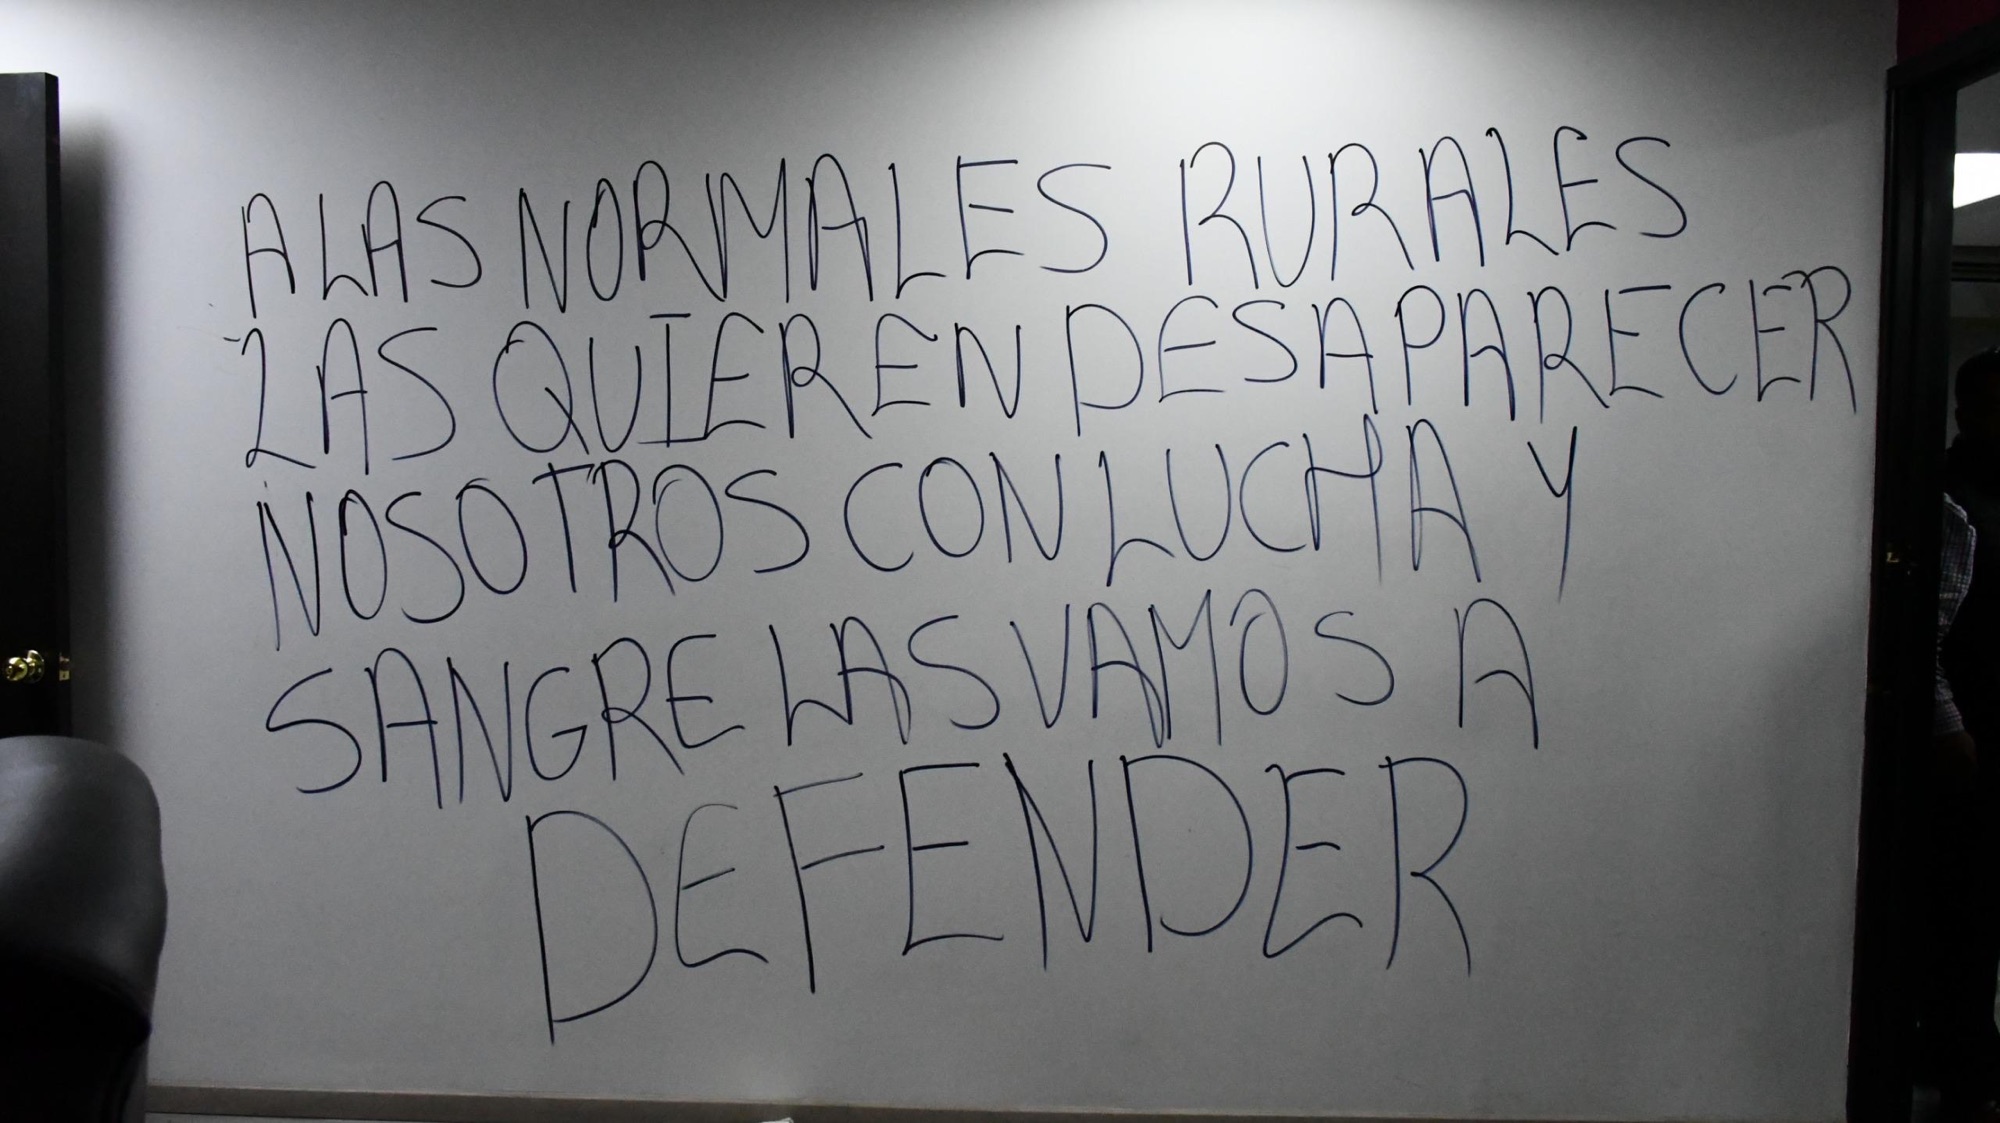 A LAS NORMALES RURALES
LAS QUIEREN DESAPARECER
NOSOTROS CON LUCHA Y
SANGRE LAS VAMOS A
DEFENDER